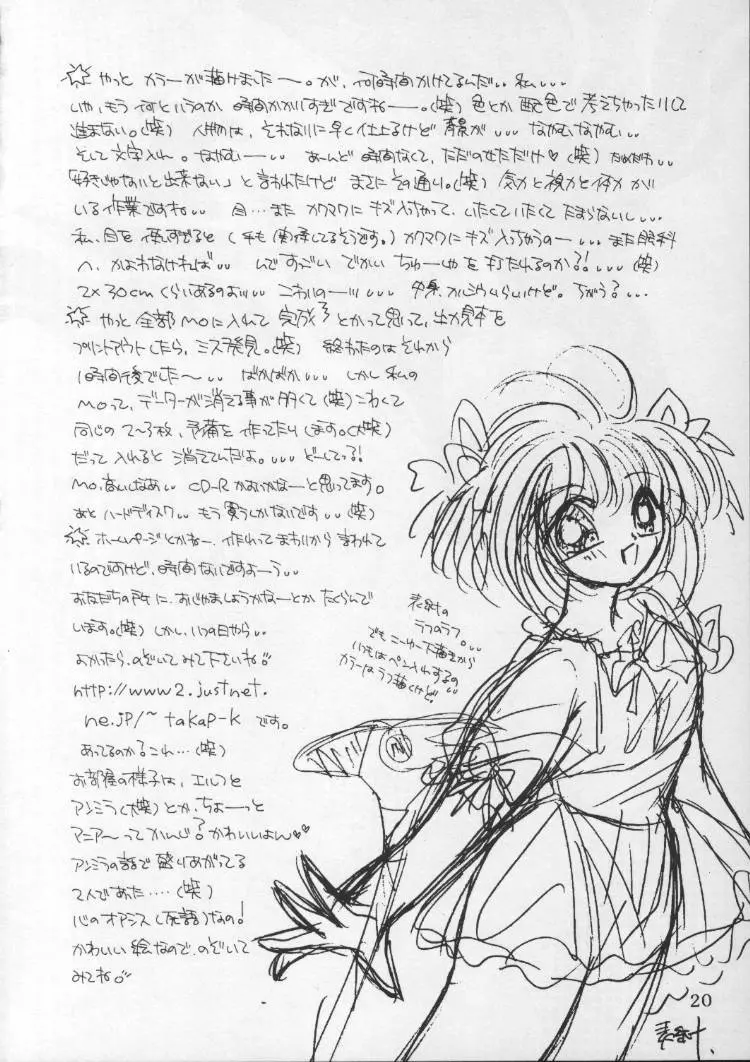 ☆ やっと カラーが描けました〜。が、何時間かけてるんだ、、私、、、
いや、もう何というのか 時間かかりすぎですねー。(笑) 色とか 配色で 考えちゃったりして
進まない。(笑) 人物は、それなりに早く仕上るけど 背景が、、、 なやむなやむ、、
そして文字入れ。なやむー、、 あーんど 時間なくて、ただのせただけ♡(笑) だめだわ、、
「好きじゃないと出来ない」と言われたけど まさにその通り。(笑) 気力と視力と体力が
いる作業ですね、、 目…また カクマクに キズ入っちゃって、いたくていたくて たまらないし、、、
私、目を 使いすぎると (手も関係してるそうです。) カクマクに キズ入っちゃうのー、、、また眼科
へ、かよわなければ、、 んで すっごい でかい ちゅーしゃを 打たれるのか?!、、、(笑)
2×30cmくらいあるのぉ、、、 こわいのー、、、
☆ やっと 全部 MOに入れて 完成♪ とかって思って、出力見本を
プリントアウトしたら、ミス発見。(笑) 終わたのは それから
1時間後でした〜、、 ばかばか、、、 しかし 私の
MOって、データーが消える事が多くて(笑) こわくて
同じの 2〜3枚、予備を 作ってたりします。(大笑)
だって 入れると 消えてんだよ。、、、どーしてっ?!
MO、高いしなぁ、、 CD-R かおいかなーと思ってます。
あと ハードディスク、、 もう買うしかないです、、(笑)
☆ ホームページとかねー、作れってまわりから言われて
いるのですけど、時間ないですよーう、、
お友だちの所に、おじゃましようかなーとか たくらんで
います。(笑) しかし、いつの日やら、、
よかたら、のぞいてみて下さいね♡
http://www2.justnet.
ne.jp/~takap-k です。
あってるのかなこれ…(笑)
お部屋の様子は、エルフと
アンミラ(大笑)とか、ちょーっと
マニア〜って かんじ? かわいいよん♡♡
アンミラの話で 盛りあがってる
2人であた‥‥(笑)
心のオアシス(死語)なの!
かわいい絵なので、のぞいて
みてね♡
表紙の
ラフのラフ。、、、
でも こーゆー下描きから
いつもはペン入れするの
カラーはラフ描くけど。
20